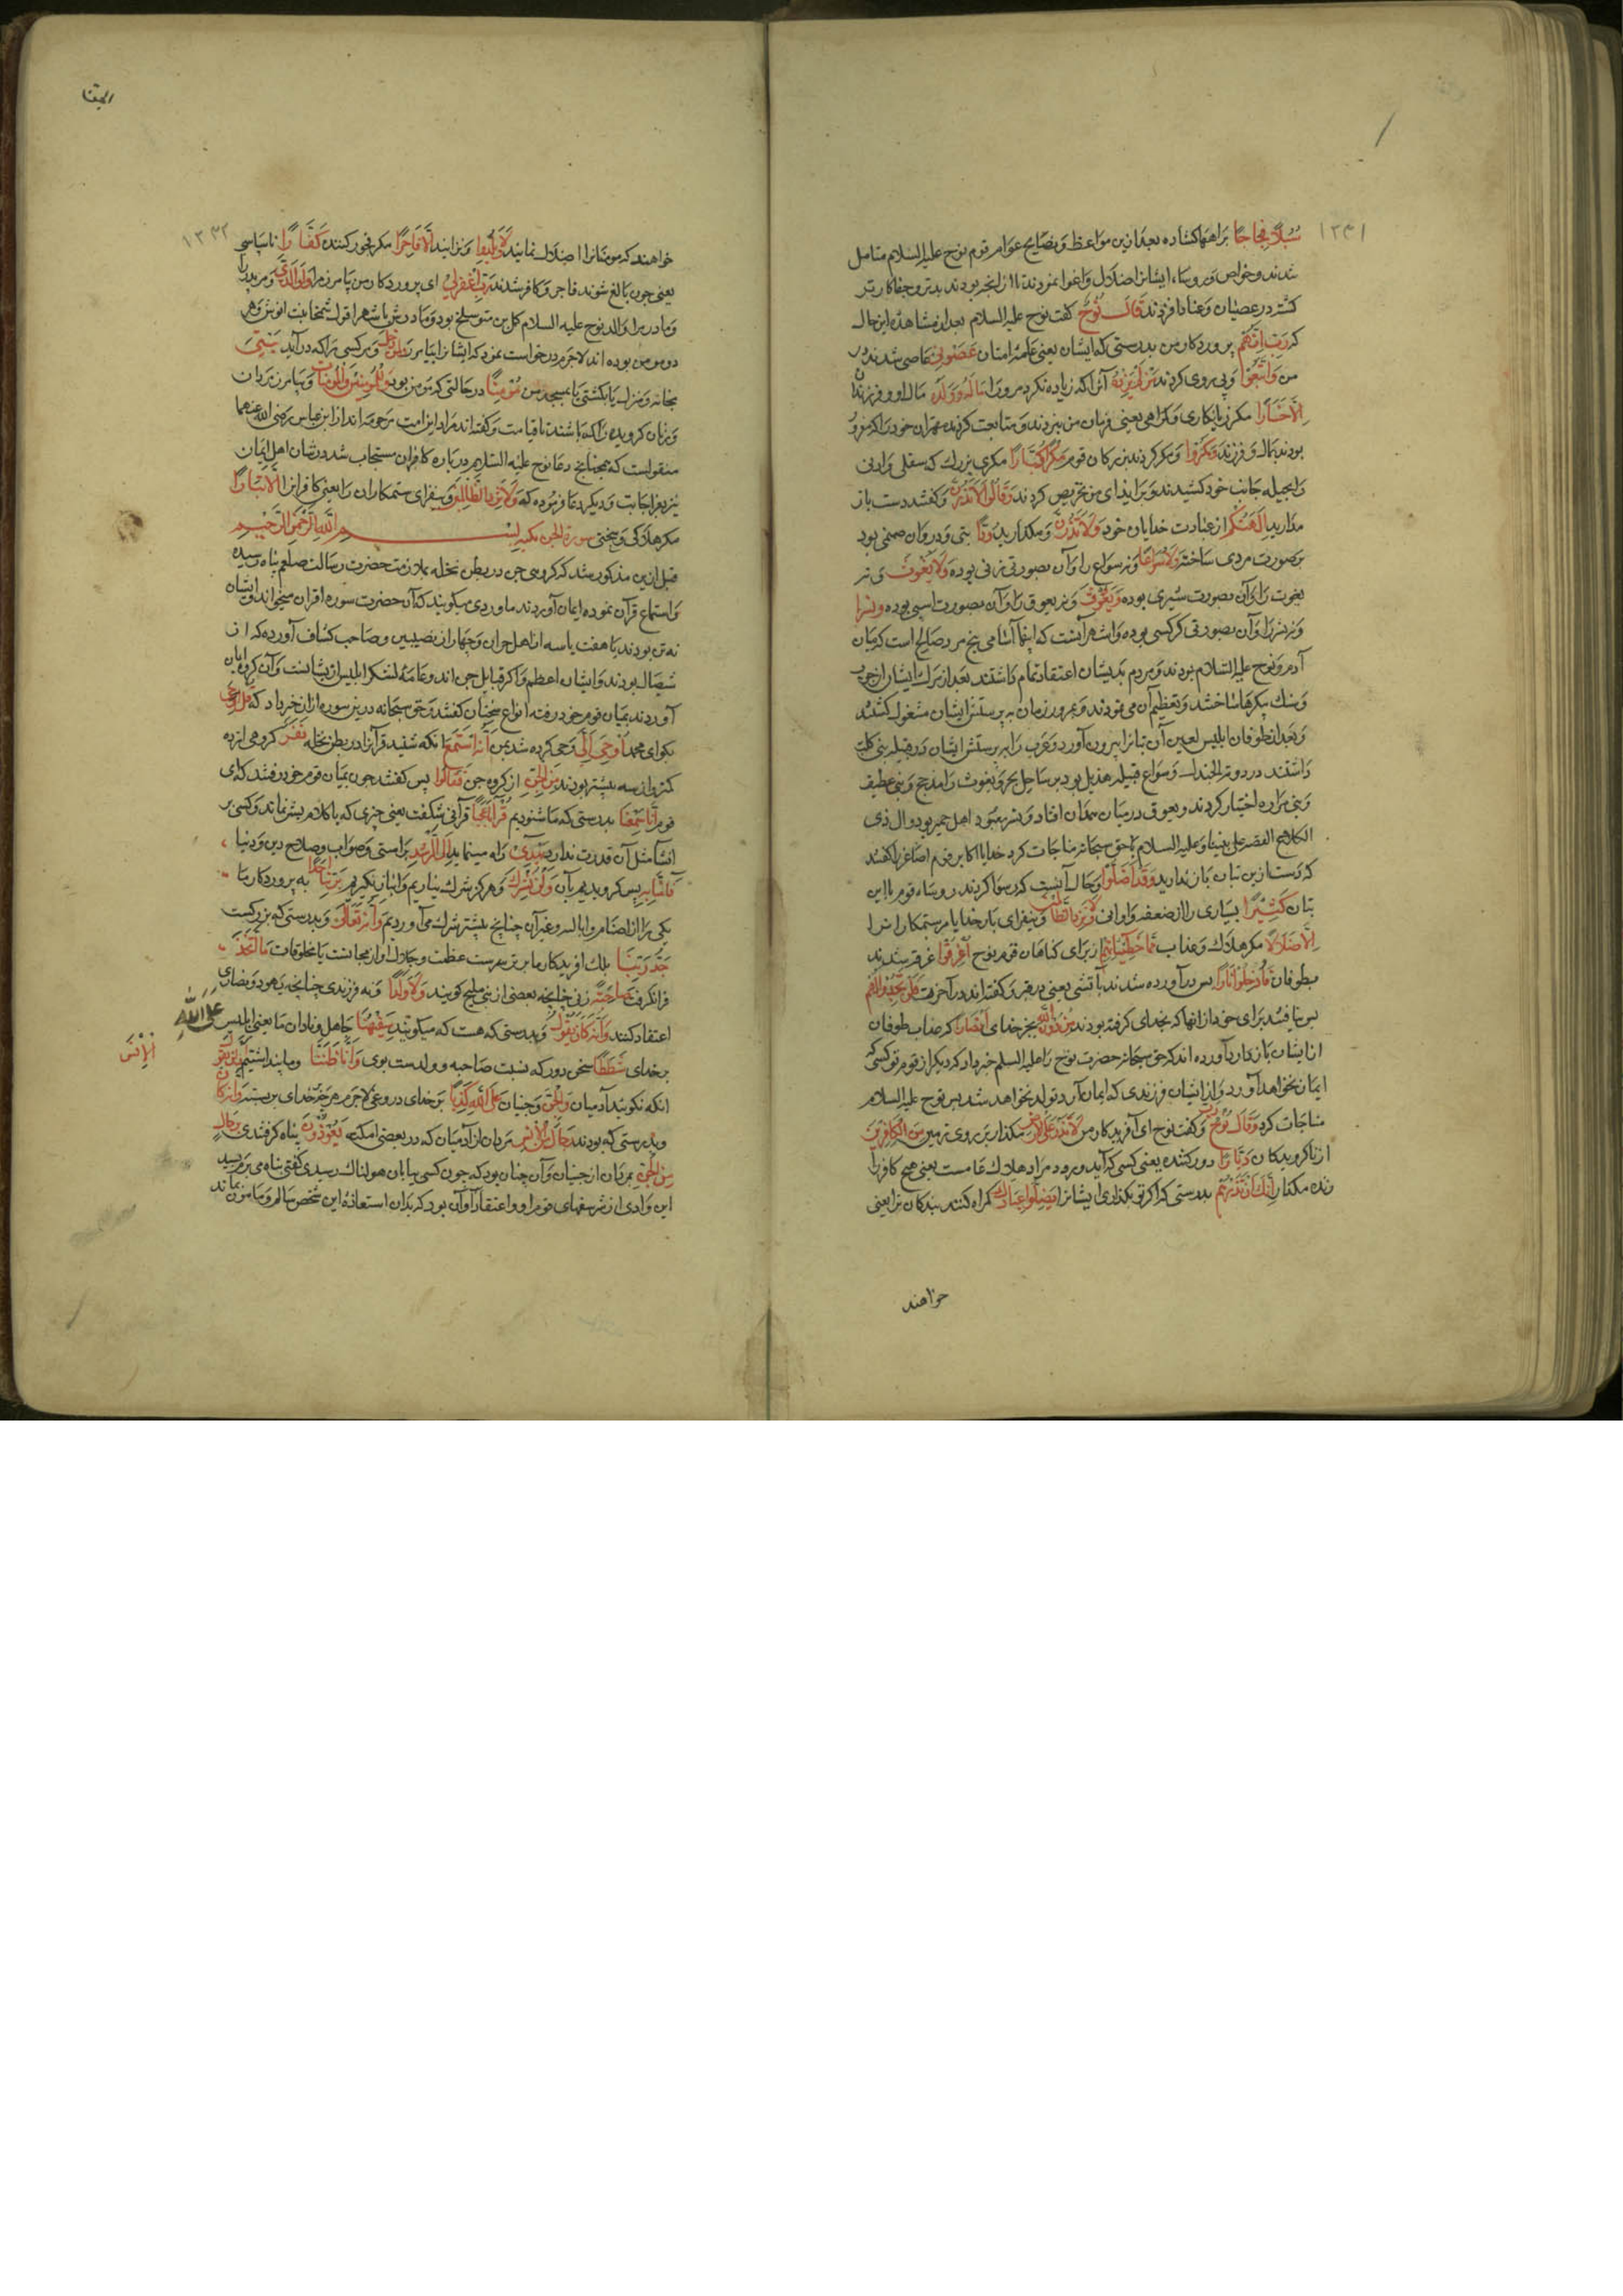 ١٣٣١
سُبُلًا فِجَاجًا براهها کشاده بعد ازین مواعظ و نصایح عوام قوم نوح علیه السلام متامل
شدند و خواص و روسا، ایشانرا اضلال و اغوا نمودند تا از انچه بودند بدتر و جفاکارتر
کشته در عصیان و عناد افزودند قَالَ نُوحٌ کفت نوح علیه السلام بعد از مشاهده این حال
که رَبِّ اِنَّهُمْ پروردکار من بدرستی که ایشان یعنی عامه امتان عَصَوْنِی عاصی شدند در
من وَاتَّبَعُوا و پی روی کردند مَنْ لَمْ یَزِدْهُ آنرا که زیاده نکرد مرورا مَالُهُ وَوَلَدُهُ مال او و فرزندان
اِلَّا خَسَارًا مکر زیانکاری و کمراهی یعنی فرمان من نبردند و متابعت کردند مهتران خود را که مغرور
بودند بمال و فرزند وَمَکَرُوا و مکر کردند بزرکان قوم مَکْرًا کُبَّارًا مکری بزرک که سفلی و ادنی
را بحیله جانب خود کشیدند و بر ایذای من تحریص کردند وَقَالُوا لَا تَذَرُنَّ و کفتند دست باز
مدارید اٰلِهَتَکُمْ از عبادت خدایان خود وَلَا تَذَرُنَّ و مکذارید وَدًّا بتی و دروان صنمی بود
بر صورت مردی ساخته وَلَا سُوَاعًا و نه سواع را و آن بصورتی زنی بوده وَلَا یَغُوثَ و نه
یغوث را و آن بصورت شیری بوده وَیَعُوقَ و نه یعوق را و آن بصورت اسپی بوده وَنَسْرًا
و نه نسر را و آن بصورتی کرکسی بوده و اشهر آنست که اینها آسامی پنج مرد صالح است که میان
آدم و نوح علیه السلام بودند و مردم بدیشان اعتقاد تمام داشتند بعد از مرک ایشان از چوب
و سنک پیکرها ساختند و تعظیم آن می نمودند و بمرور زمان به پرستش ایشان مشغول کشتند
و بعد از طوفان ابلیس لعین آن بتانرا بیرون آورد و عرب را بر پرستش ایشان و در قبیله بنی کلب
داشتند در دومة الجندل و سواع قبیله هذیل بود بر ساحل بحر و یغوث را مذحج و بنی غطیف
و بنی مراد اختیار کردند و یعوق در میان همدان افتاد و نسر معبود اهل حمیر بود و آل ذی
الکلاع القصه علی نبینا و علیه السلام با حق سبحانه مناجات کرد خدایا اکابر قوم اصاغر را کفتند
که دست ازین بتان باز ندارید وَقَدْ اَضَلُّوا و حال آنست که رسوا کردند روساء قوم با این
بتان کَثِیرًا بسیاری را از ضعفه و اوانی وَلَا تَزِدِ الظَّالِمِینَ و میفزای بار خدایا مر ستمکارانرا
اِلَّا ضَلَالًا مکر هلاک و عذاب مِمَّا خَطِیئَاتِهِمْ از برای کناهان قوم نوح اُغْرِقُوا غرقه شدند
بطوفان فَاُدْخِلُوا نَارًا پس در آورده شدند بآتشی یعنی در قبر و کفته اند در آخرت فَلَمْ یَجِدُوا لَهُمْ
پس نیافتند برای خود از انها که بخدای کرفته بودند مِنْ دُونِ اللّٰهِ بجز خدای اَنْصَارًا که عذاب طوفان
از ایشان باز دارد آورده اند که حق سبحانه حضرت نوح را علیه السلم خبر داد که دیکر از قوم تو کسی که
ایمان نخواهد آورد و از ایشان فرزندی که ایمان آرد تولد نخواهد شد پس نوح علیه السلام
مناجات کرد وَقَالَ نُوحٌ رَبِّ و کفت نوح ای آفریدکار من لَا تَذَرْ عَلَی الْاَرْضِ مکذار بر روی زمین مِنَ الْکَافِرِینَ
از ناکرویدکان دَیَّارًا دور کننده یعنی کسی که آید و رود مراد هلاک عامست یعنی هیچ کافر را
زنده مکذار اِنَّکَ اِنْ تَذَرْهُمْ بدرستی که اکر تو بکذاری ایشانرا یُضِلُّوا عِبَادَکَ کمراه کنند بندکان ترا یعنی
خواهند
١٣٣٢
خواهند که مومنانرا اضلال نمایند وَلَا یَلِدُوا و نزایند اِلَّا فَاجِرًا مکر فجور کننده کَفَّارًا ناسپاسی
یعنی چون بالغ شوند فاجر و کافر شدند رَبِّ اغْفِرْ لِی ای پروردکار من بیامرز مرا وَلِوَالِدَیَّ و مر پدر
و مادر مرا و الد نوح علیه السلام کل بن متوسلخ بود و مادرش باشهر اقوال شمخا بنت انوش و هر
دو مومن بوده اند لاجرم درخواست نمود که ایشانرا بیامرز وَلِمَنْ دَخَلَ و هر کسی را که در آید بَیْتِیَ
بخانه و منزل یا بکشتی یا بمسجد من مُؤْمِنًا در حالتی که مومن بود وَلِلْمُؤْمِنِینَ وَالْمُؤْمِنَاتِ و بیامرز مردان
و زنان کرویده را که باشند تا قیامت و کفته اند مراد این امت مرحومه اند از ابن عباس رضی الله عنهما
منقولست که همچنانچه دعا نوح علیه السلام در باره کافران مستجاب شد در شان اهل ایمان
نیز بعز اجابت و دیکر دعا فرموده که وَلَا تَزِدِ الظَّالِمِینَ و میفزای ستمکاران را یعنی کافرانرا اِلَّا تَبَارًا
مکر هلاکی و سختی سورة الجن مکیه بِسْمِ اللّٰهِ الرَّحْمٰنِ الرَّحِیمِ
قبل ازین مذکور شد که کروهی جن در بطن نخله بملازمت حضرت رسالت صلعم پناه رسیده
و استماع قرآن نموده ایمان آوردند ماوردی میکویند که آن حضرت سوره اقرا می خواند و ایشان
نه تن بودند یا هفت یا سه از اهل حران و چهار از نصیبین و صاحب کشاف آورده که از
شیصال بودند و ایشان اعظم و اکثر قبایل جن اند و عامه لشکر ابلیس از یشانست و آن کروه ایمان
آوردند بمیان قوم خود رفته انواع سخنان کفتند و حق سبحانه درین سوره از ان خبر داد که قُلْ اُوحِیَ
بکو ای محمد اُوحِیَ اِلَیَّ وحی کرده شد بمن اَنَّهُ اسْتَمَعَ آنکه شنید قرآنرا در بطن نخله نَفَرٌ کروهی از ده
کمتر و از سه بیشتر بودند مِنَ الْجِنِّ از کروه جن فَقَالُوا پس کفتند چون بمیان قوم خود رفتند که ای
قوم اِنَّا سَمِعْنَا بدرستی که ما شنودیم قُرْاٰنًا عَجَبًا قرآنی شکفت یعنی چیزی که با کلام بشر نماند و کسی بر
انشاء مثل آن قدرت ندارد یَهْدِی راه مینماید اِلَی الرُّشْدِ براستی و صواب و صلاح دین و دنیا
فَاٰمَنَّا بِهِ پس کرویدیم بآن وَلَنْ نُشْرِکَ و هرکز شرک نیاریم و انباز نکیریم بِرَبِّنَا اَحَدًا به پروردکار ما
یکی را از اصنام و ابالسه و غیر آن چنانچه پیشتر شرک می آوردیم وَاَنَّهُ تَعَالٰی و بدرستی که بزرکست
جَدُّ رَبِّنَا بلک افریدکار ما برتر مهرست عظمت و جلال او از مجانست با مخلوقات مَا اتَّخَذَ
فرا نکرفت صَاحِبَةً زنی چنانچه بعضی از بنی ملیح کویند وَلَا وَلَدًا و نه فرزندی چنانچه یهود و نصاری
اعتقاد کنند وَاَنَّهُ کَانَ یَقُولُ و بدرستی که هست که میکویند سَفِیهُنَا جاهل و نادان ما یعنی ابلیس عَلَی اللّٰهِ
بر خدای شَطَطًا سخن دور که نسبت صاحبه و ولدست بوی وَاَنَّا ظَنَنَّا و ما پنداشتیم اَنْ لَنْ تَقُولَ
الْاِنْسُ
انکه نکویند آدمیان وَالْجِنُّ و جنیان عَلَی اللّٰهِ کَذِبًا بر خدای دروغی لاجرم هر چه بر خدای بر بستند وَاَنَّهُ کَانَ
و بدرستی که بودند رِجَالٌ مِنَ الْاِنْسِ مردان از آدمیان که در بعضی امکنه یَعُوذُونَ پناه کرفتندی بِرِجَالٍ
مِنَ الْجِنِّ بمردان از جنیان و آن چنان بود که چون کسی به بیابان هولناک رسیدی کفتی پناه می برم بسید
این وادی از شر سفهای قوم او و اعتقاد آن بود که بدان استعاذه این شخص سالم و مامون بماند